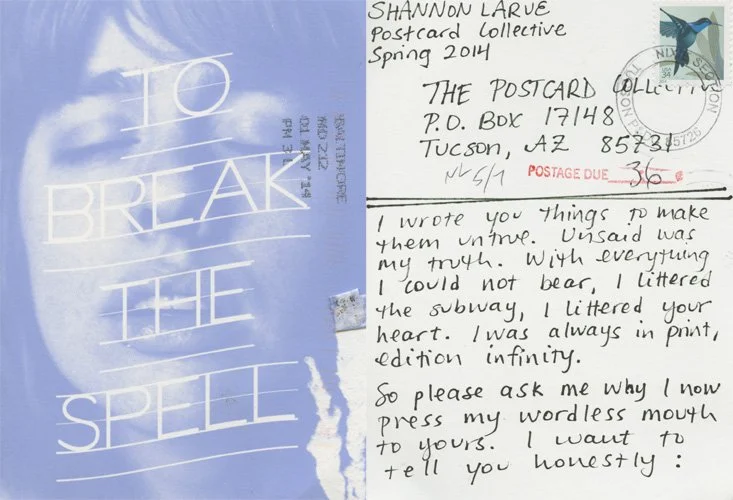 TO
BREAK
THE
SPELL
BALTIMORE
MD 212
01 MAY '14
SHANNON LARUE
Postcard Collective
Spring 2014
THE POSTCARD COLLECTIVE
P.O. BOX 17148
Tucson, AZ 85731
POSTAGE DUE 36 ¢
TUCSON
NIX SECTION
85726
USA
34
I wrote you things to make
them untrue. Unsaid was
my truth. With everything
I could not bear, I littered
the subway, I littered your
heart. I was always in print,
edition infinity.
So please ask me why I now
press my wordless mouth
to yours. I want to
tell you honestly :